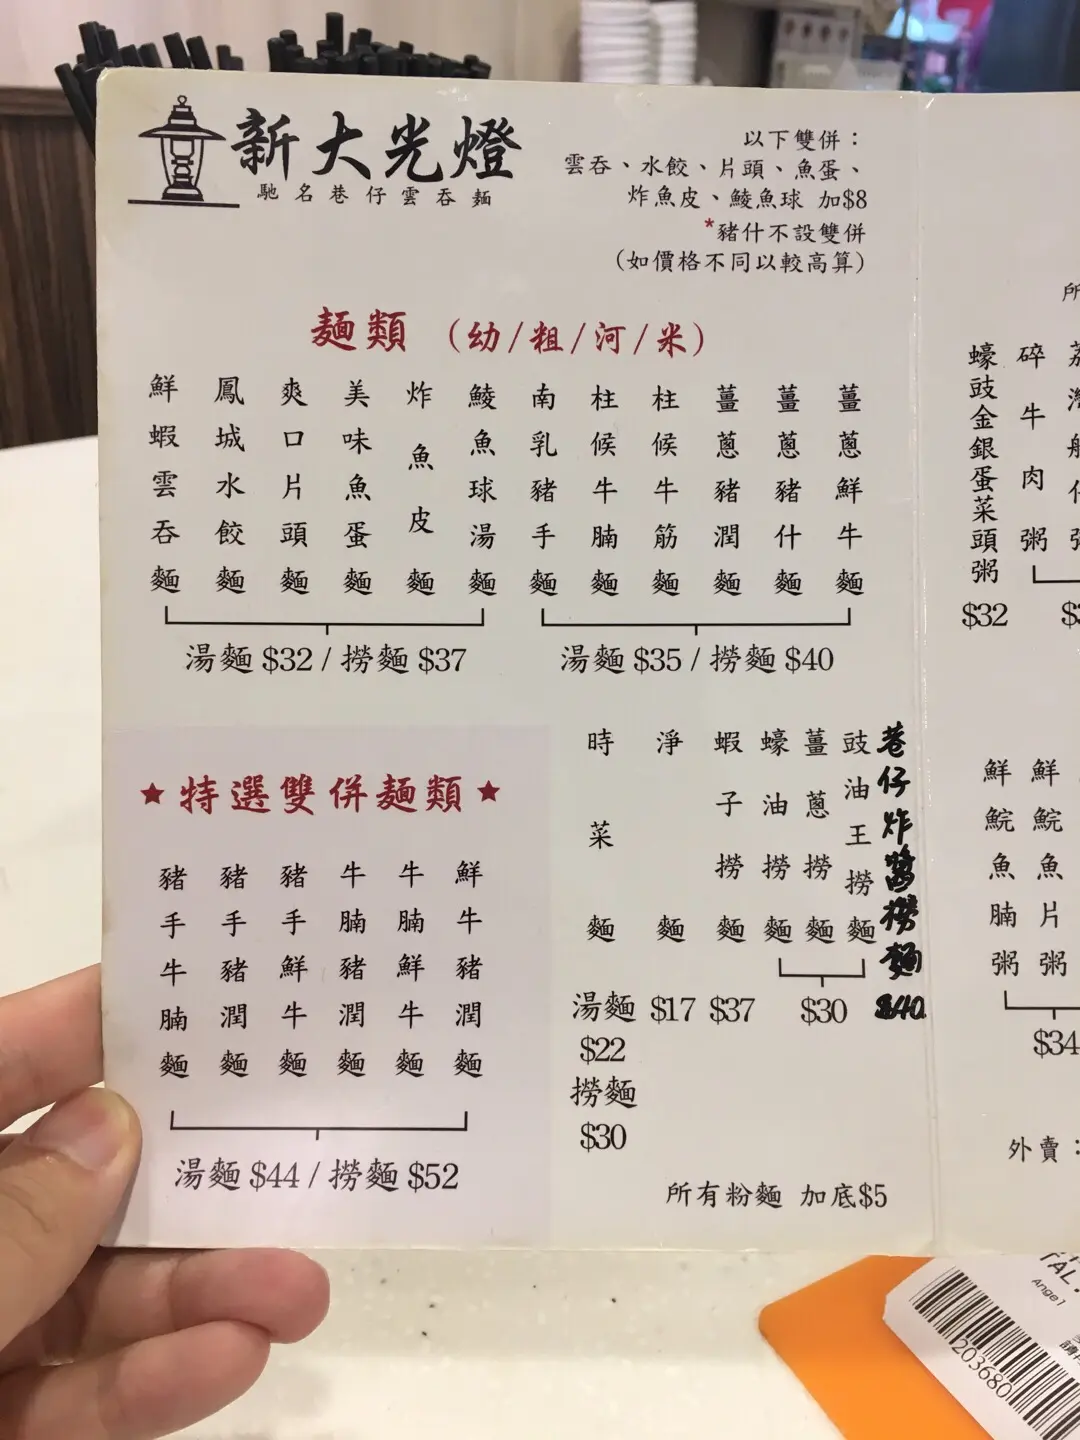 新大光燈
馳名巷仔雲吞麵
以下雙併：
雲吞、水餃、片頭、魚蛋、
炸魚皮、鯪魚球 加$8
*豬什不設雙併
(如價格不同以較高算)
麵類 (幼/粗/河/米)
鮮蝦雲吞麵
鳳城水餃麵
爽口片頭麵
美味魚蛋麵
炸魚皮麵
鯪魚球湯麵
湯麵 $32 / 撈麵 $37
南乳豬手麵
柱候牛腩麵
柱候牛筋麵
薑蔥豬潤麵
薑蔥豬什麵
薑蔥鮮牛麵
湯麵 $35 / 撈麵 $40
★特選雙併麵類★
豬手牛腩麵
豬手豬潤麵
豬手鮮牛麵
牛腩豬潤麵
牛腩鮮牛麵
鮮牛豬潤麵
湯麵 $44 / 撈麵 $52
時菜麵
湯麵
$22
撈麵
$30
淨麵
$17
蝦子撈麵
$37
蠔油撈麵
薑蔥撈麵
豉油王撈麵
$30
巷仔炸醬撈麵
$40
所有粉麵 加底$5
蠔豉金銀蛋菜頭粥
$32
碎牛肉粥
鮮鯇魚腩粥
鮮鯇魚片粥
$34
外賣：
Angel
203680